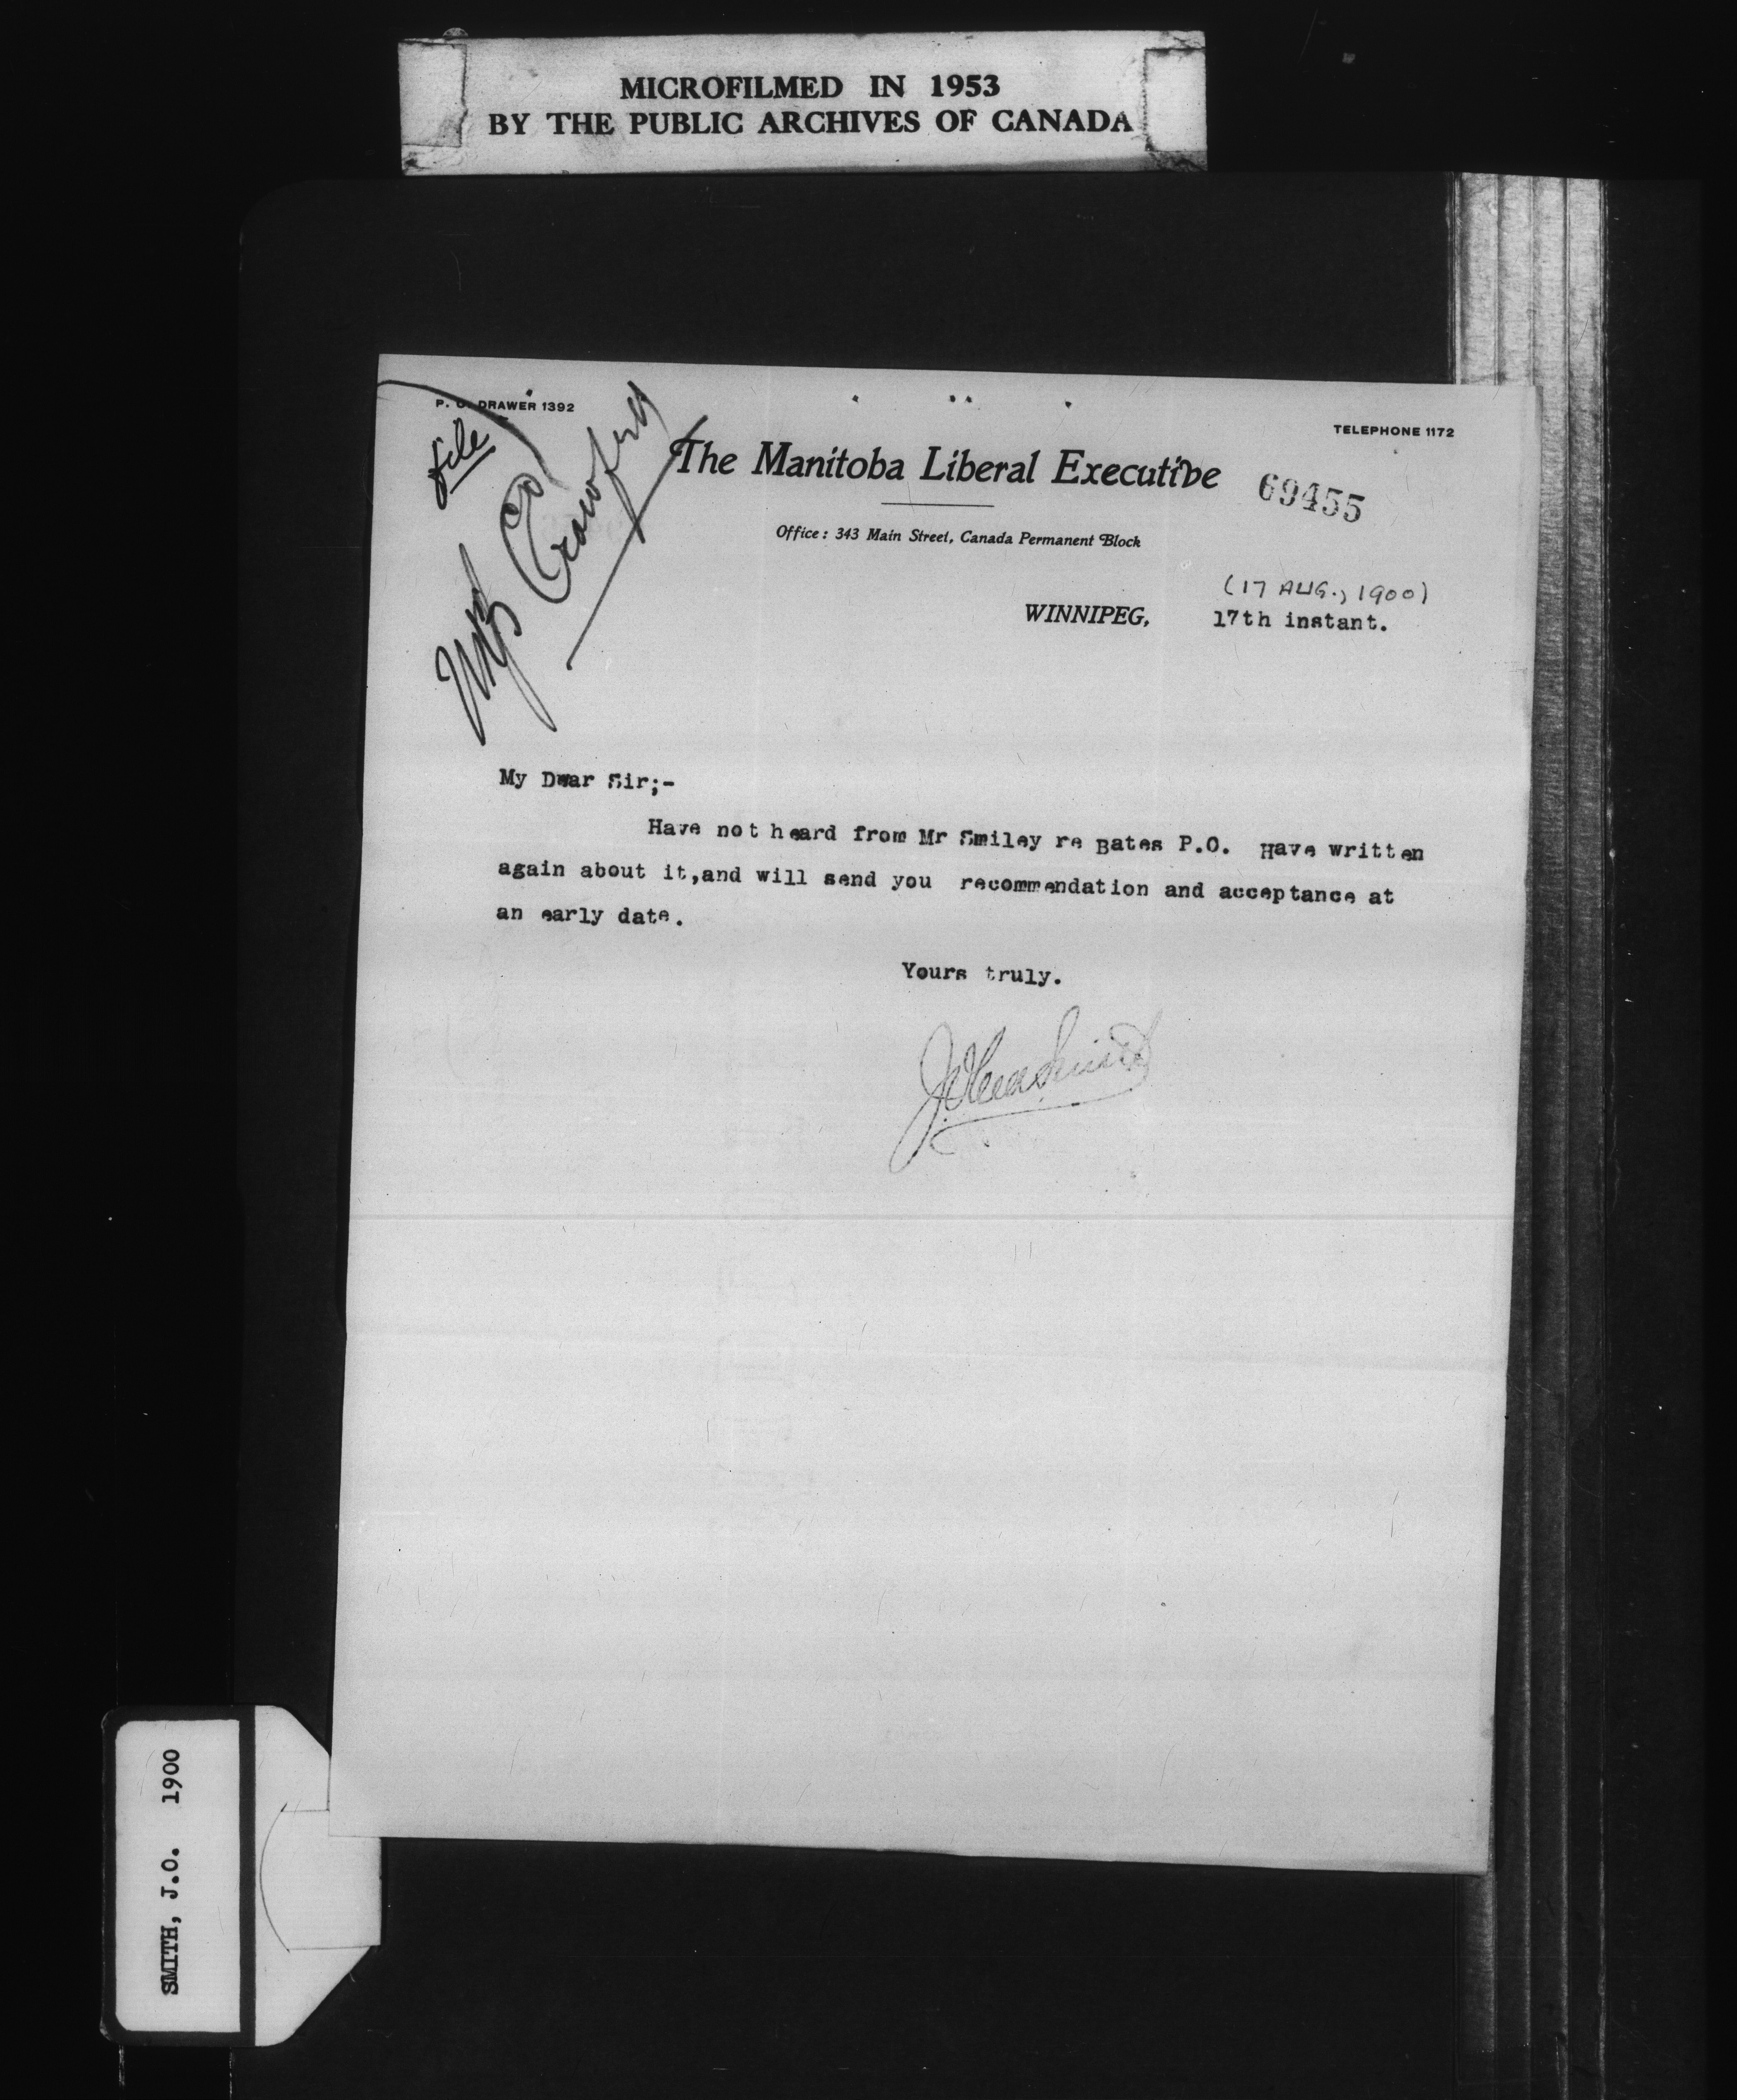 MICROFILMED IN 1953
BY THE PUBLIC ARCHIVES OF CANADA
P. O. DRAWER 1392
TELEPHONE 1172
file
Crawford
The Manitoba Liberal Executive
69455
Office: 343 Main Street, Canada Permanent Block
(17 AUG., 1900)
WINNIPEG, 17th instant.
My Dear Sir;-
Have not heard from Mr Smiley re Bates P.O. Have written
again about it,and will send you recommendation and acceptance at
an early date.
Yours truly.
SMITH, J.O. 1900